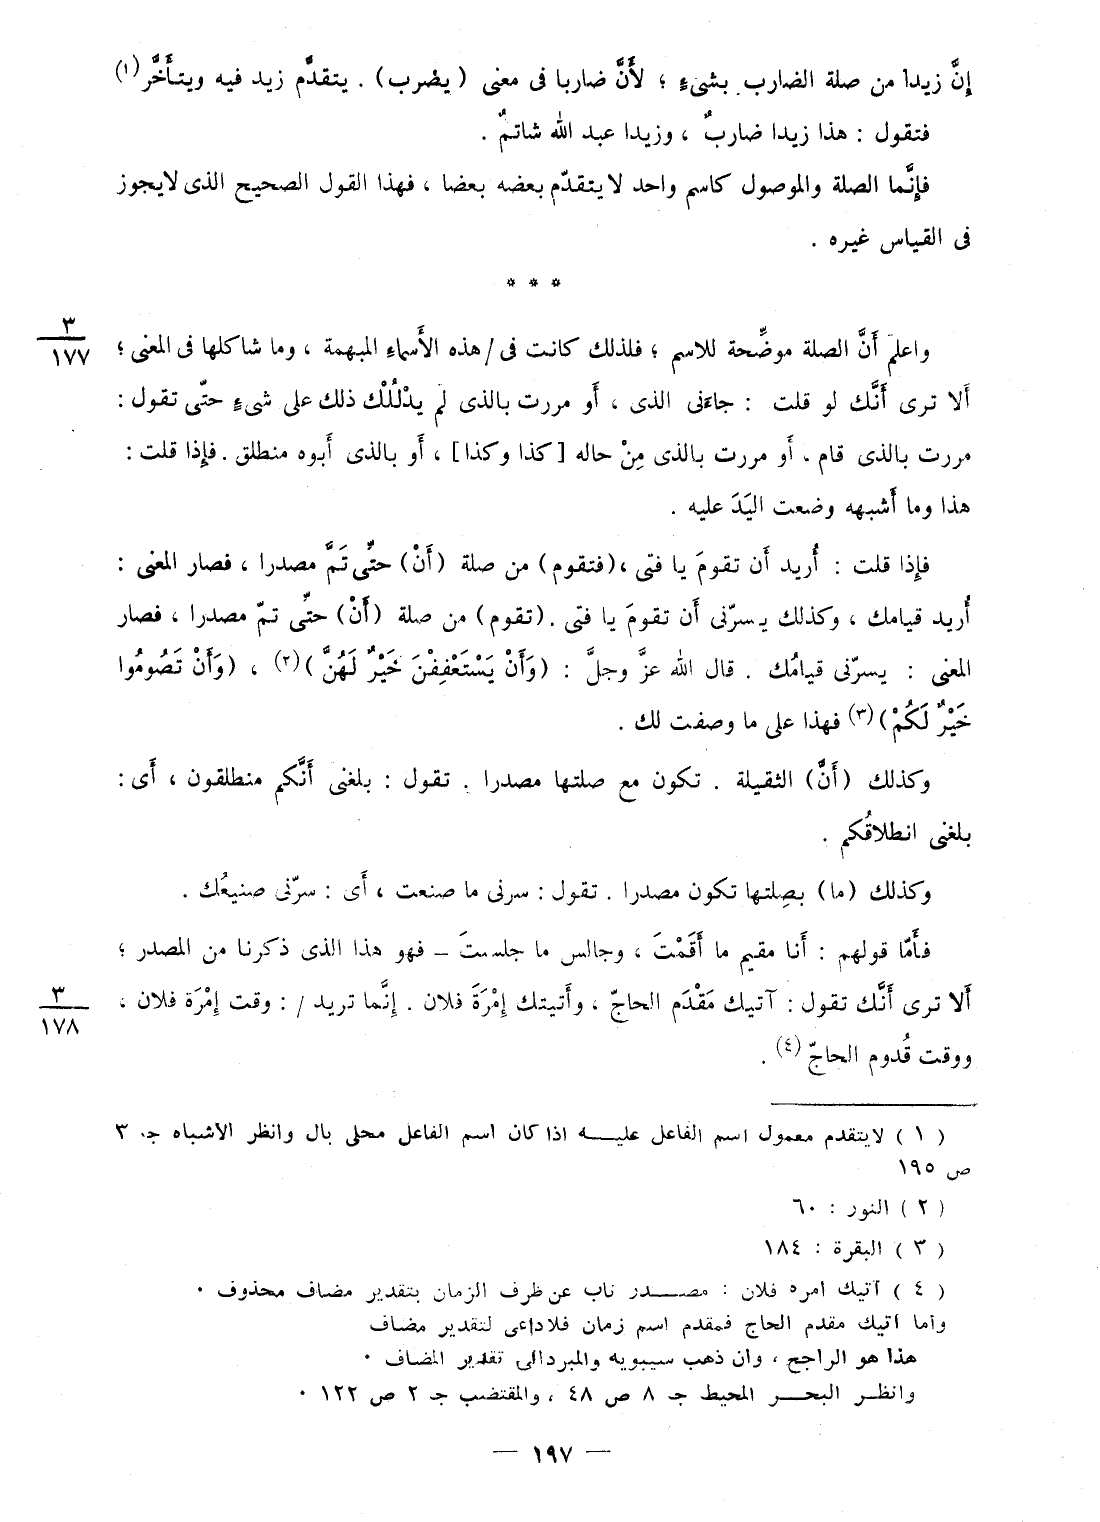 إنَّ زيدا من صلة الضارب بشىءٍ ؛ لأَنَّ ضاربا فى معنى ( يضرب ) . يتقدَّم زيد فيه ويتأَخَّر (١)
فتقول : هذا زيدا ضاربٌ ، وزيدا عبد الله شاتمٌ .
فإِنَّما الصلة والموصول كاسم واحد لا يتقدّم بعضه بعضا ، فهذا القول الصحيح الذى لايجوز
فى القياس غيره .
* * *
٣
١٧٧
واعلم أَنَّ الصلة موضِّحة للاسم ؛ فلذلك كانت فى / هذه الأَسماء المبهمة ، وما شاكلها فى المعنى ؛
أَلا ترى أَنَّك لو قلت : جاءَنى الذى ، أَو مررت بالذى لم يدْلُلْك ذلك على شىءٍ حتّى تقول :
مررت بالذى قام ، أَو مررت بالذى مِنْ حاله [ كذا وكذا ] ، أَو بالذى أَبوه منطلق . فإِذا قلت :
هذا وما أَشبهه وضعت اليَدَ عليه .
فإِذا قلت : أُريد أَن تقومَ يا فتى ، (فتقوم) من صلة (أَنْ) حتَّى تَمَّ مصدرا ، فصار المعنى :
أُريد قيامك ، وكذلك يسرّنى أَن تقومَ يا فتى . (تقوم) من صلة (أَنْ) حتَّى تمّ مصدرا ، فصار
المعنى : يسرّنى قيامُك . قال الله عزَّ وجلَّ : (وَأَنْ يَسْتَعْفِفْنَ خَيْرٌ لَهُنَّ)(٢) ، (وَأَنْ تَصُومُوا
خَيْرٌ لَكُمْ)(٣) فهذا على ما وصفت لك .
وكذلك (أَنَّ) الثقيلة . تكون مع صلتها مصدرا . تقول : بلغنى أَنَّكم منطلقون ، أَى :
بلغنى انطلاقُكم .
وكذلك (ما) بصِلتها تكون مصدرا . تقول : سرنى ما صنعت ، أَى : سرّنى صنيعُك .
فأَمّا قولهم : أَنا مقيم ما أَقَمْتَ ، وجالس ما جلستَ – فهو هذا الذى ذكرنا من المصدر ؛
٣
١٧٨
أَلا ترى أَنَّك تقول : آتيك مَقْدَم الحاجّ ، وأَتيتك إمْرَةَ فلان . إنَّما تريد / : وقت إمْرَة فلان ،
ووقت قُدوم الحاجّ (٤) .
( ١ ) لايتقدم معمول اسم الفاعل عليه اذا كان اسم الفاعل محلى بال وانظر الاشباه ج‍ ٣
ص ١٩٥
( ٢ ) النور : ٦٠
( ٣ ) البقرة : ١٨٤
( ٤ ) آتيك امره فلان : مصدر ناب عن ظرف الزمان بتقدير مضاف محذوف ٠
وأما آتيك مقدم الحاج فمقدم اسم زمان فلاداعى لتقدير مضاف
هذا هو الراجح ، وان ذهب سيبويه والمبردالى تقدير المضاف ٠
وانظر البحر المحيط ج‍ ٨ ص ٤٨ ، والمقتضب ج‍ ٢ ص ١٢٢ ٠
— ١٩٧ —